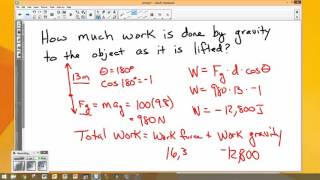 How much work is done by gravity
to the object as it is lifted?
13m
θ = 180°
cos 180° = -1
Fg = mag = 100(9.8)
= 980N
W = Fg · d · cosθ
W = 980 · 13 · -1
W = -12,800 J
Total Work = Work force + Work gravity
16,3
-12,800